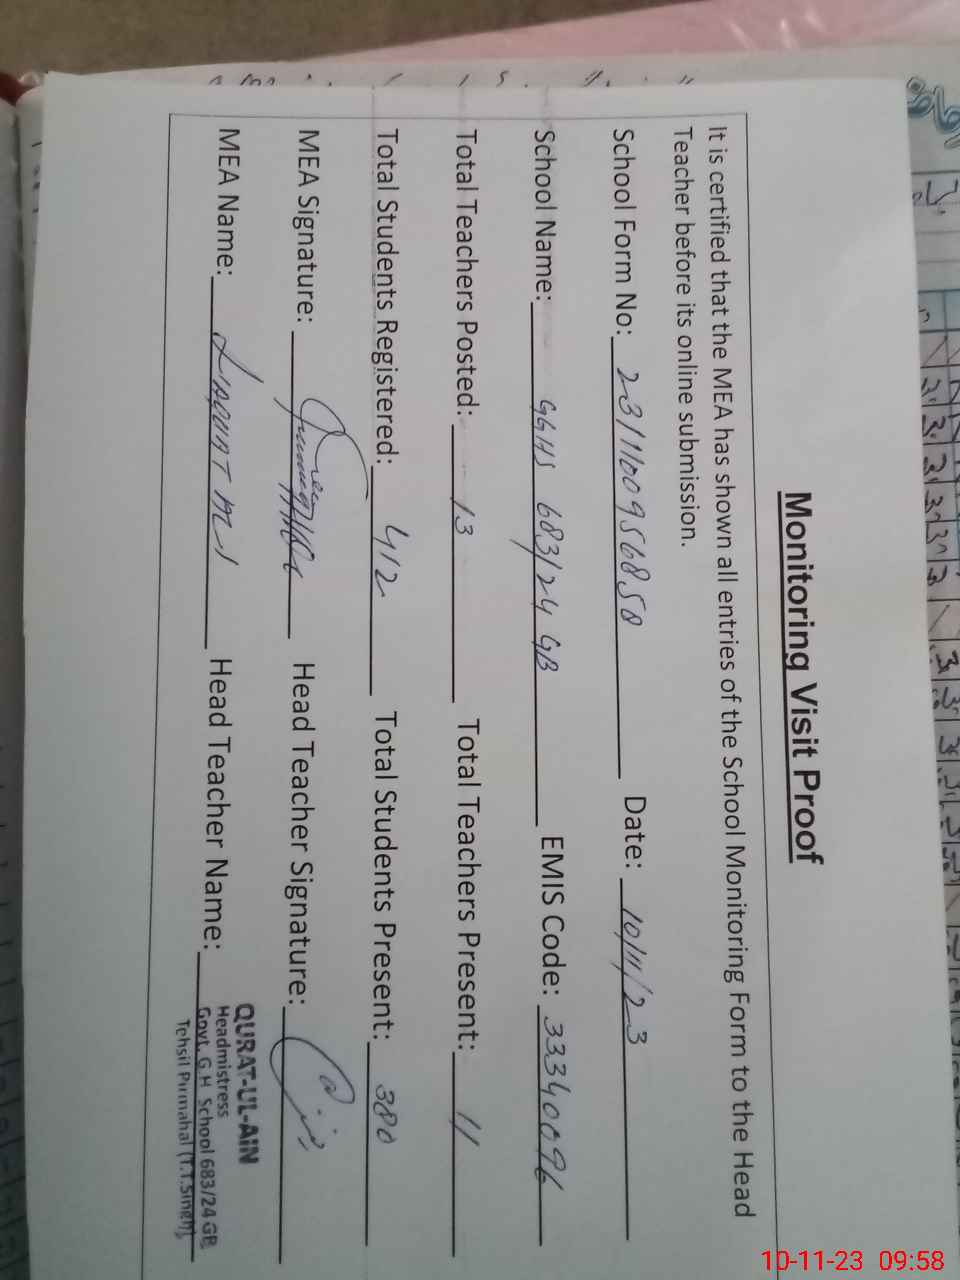 Monitoring Visit Proof
It is certified that the MEA has shown all entries of the School Monitoring Form to the Head
Teacher before its online submission.
School Form No: 2311009568 50 Date: 10/11/23
School Name: GGHS 683/24 GB EMIS Code: 33340096
Total Teachers Posted: 13 Total Teachers Present: 11
Total Students Registered: 412 Total Students Present: 380
MEA Signature: Head Teacher Signature:
MEA Name: LIAQUAT Head Teacher Name:
QURAT-UL-AIN
Headmistress
Govt. G.H School 683/24 GB
Tehsil Pirmahal (T.T.Singh)
10-11-23 09:58